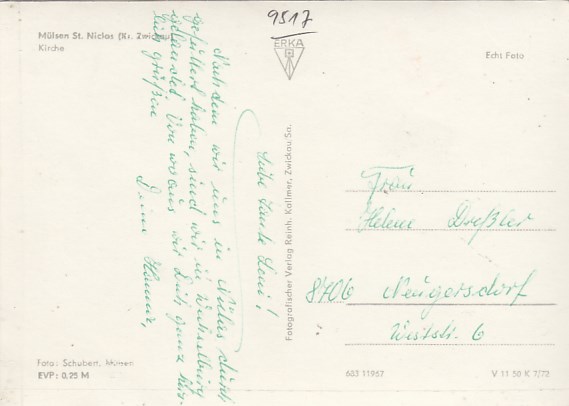 9517
Mülsen St. Niclas (Kr. Zwickau)
Kirche
ERKA
Echt Foto
Liebe Tante Leni!
Nachdem wir uns in Niclas durch
gefüttert haben, sind wir in
gelandet. Von wo aus wir Dich ganz herz-
lich grüßen
Deine Hanna,
Fotografischer Verlag Reinh. Kallmer, Zwickau Sa.
Frau
Helene Dreßler
8706 Neugersdorf
Weststr. 6
Foto: Schubert, Mülsen
EVP: 0,25 M
683 11957
V 11 50 K 7/72